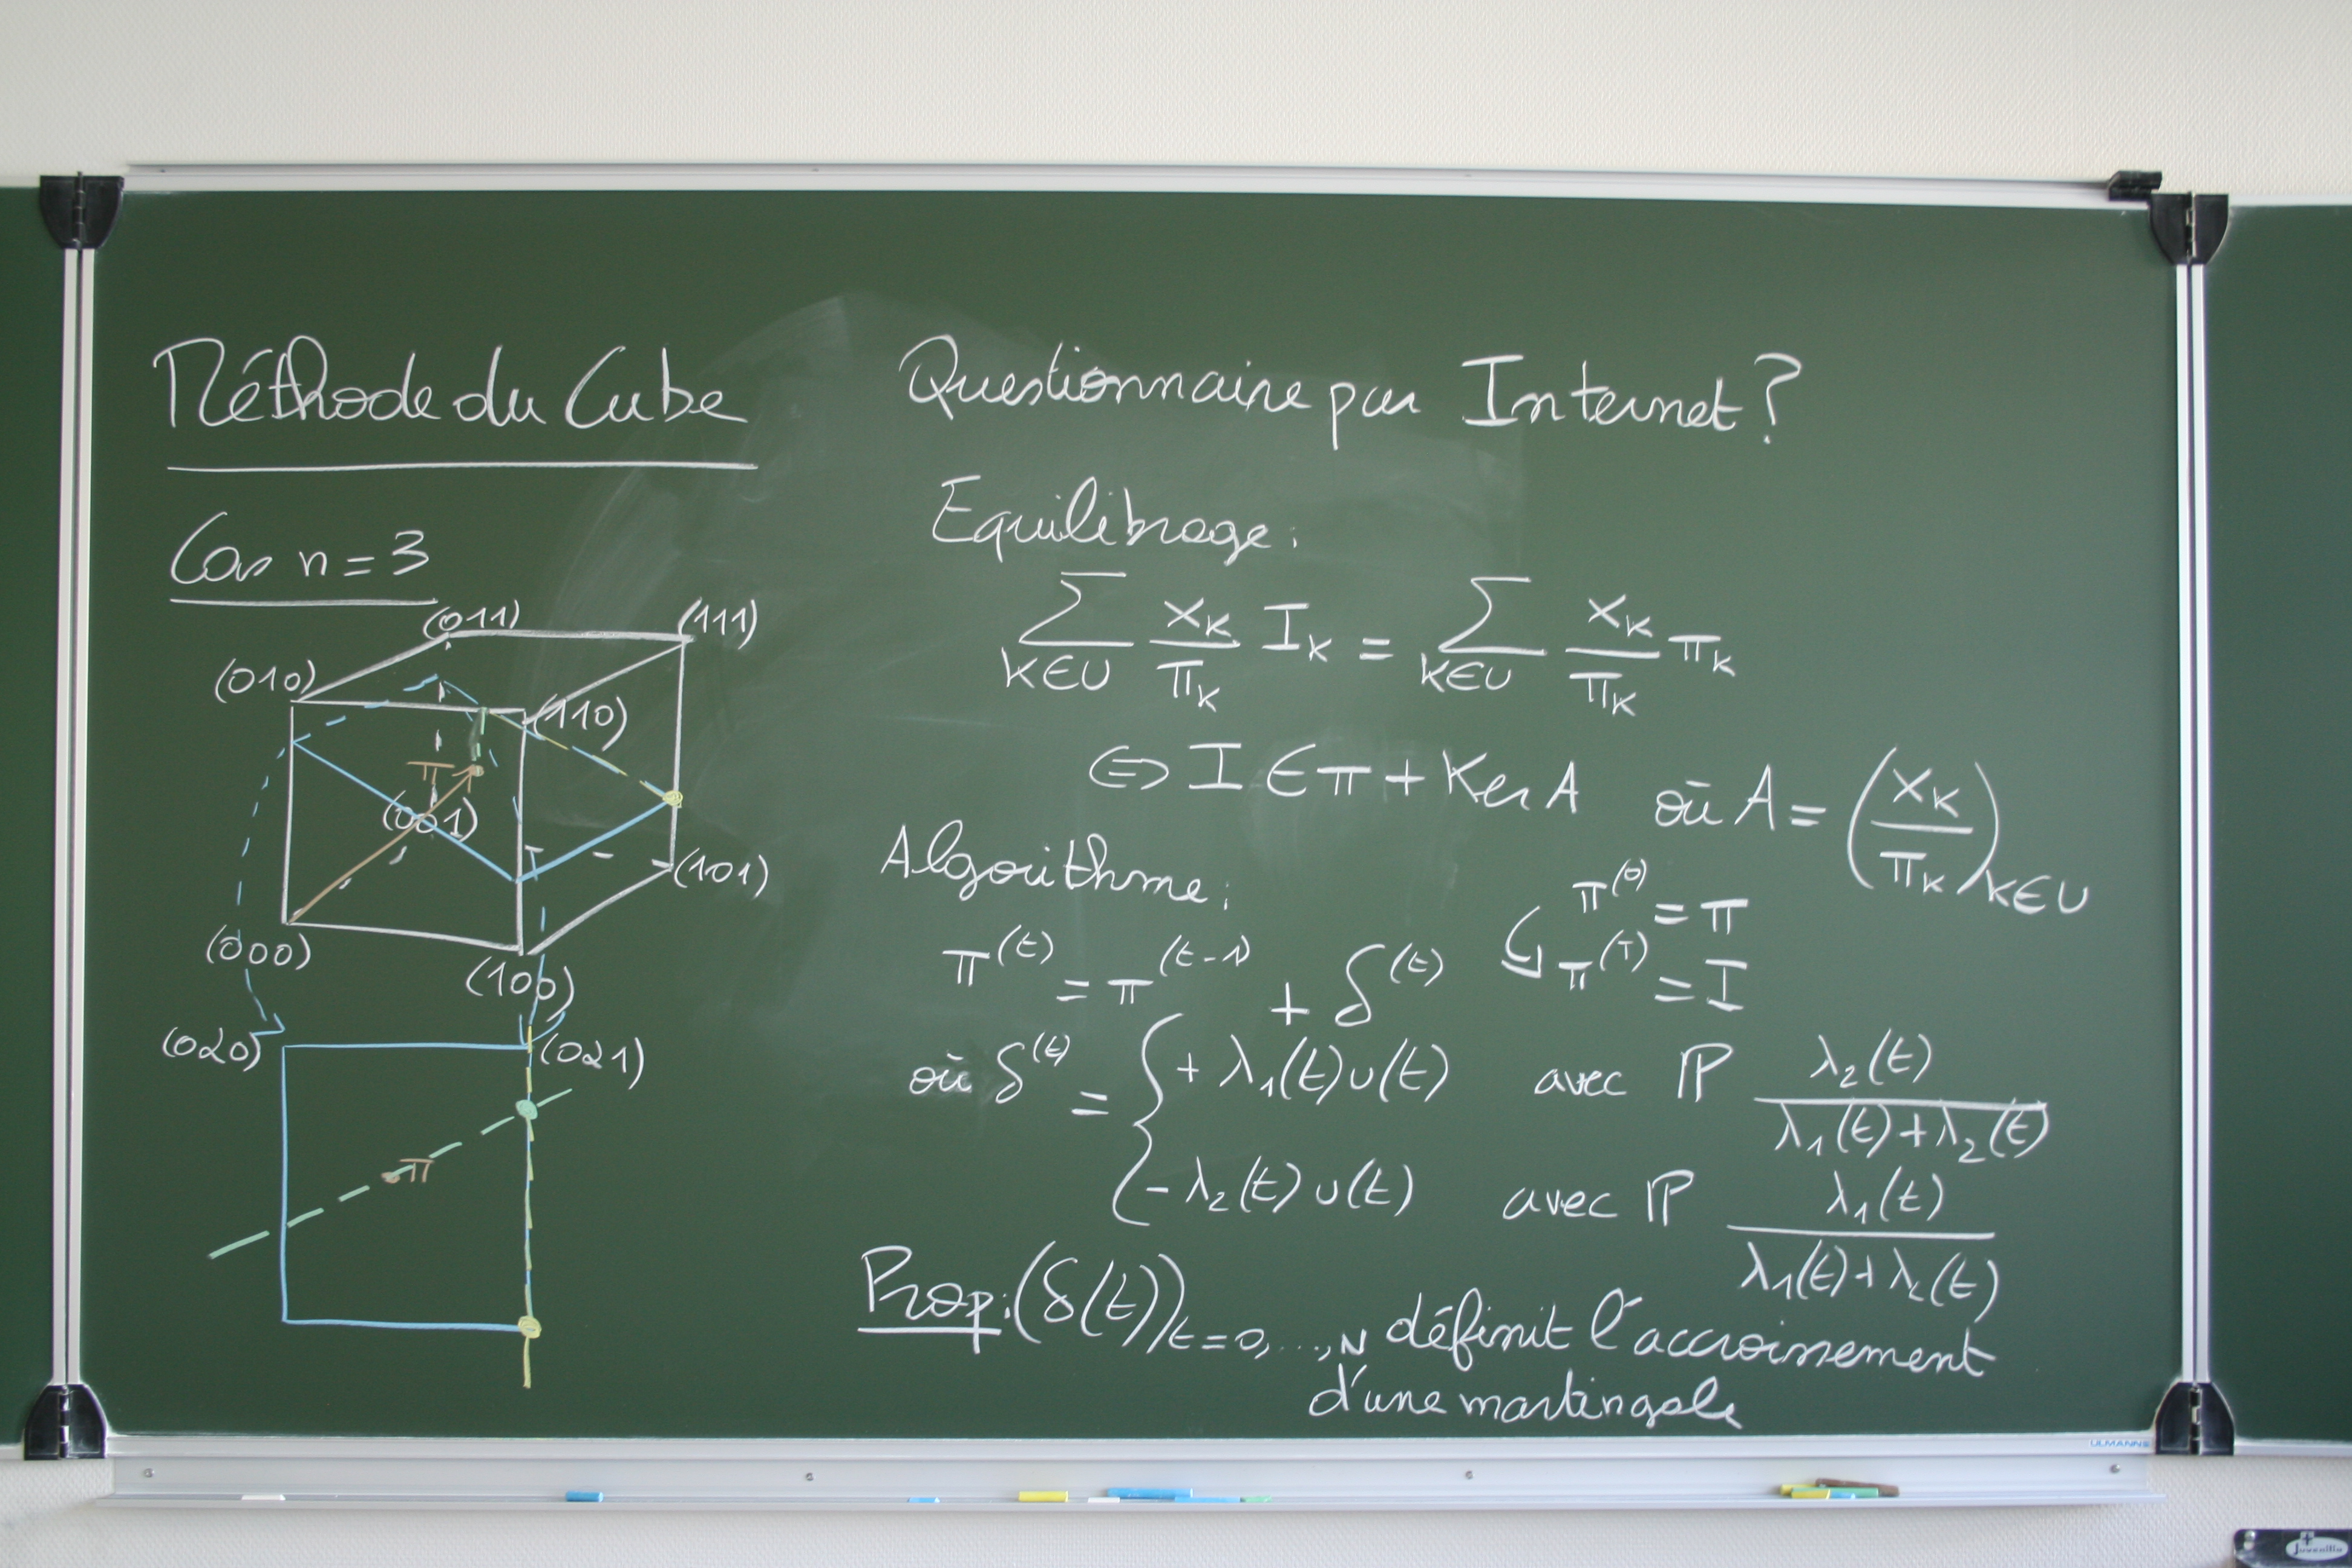 Méthode du Cube
Cas n = 3
(011)
(111)
(010)
(110)
π
(001)
(101)
(000)
(100)
(020)
(021)
π
Questionnaire par Internet ?
Equilibrage :
∑_{k∈U} x_k/π_k I_k = ∑_{k∈U} x_k/π_k π_k
⇔ I ∈ π + Ker A où A = (x_k/π_k)_{k∈U}
Algorithme :
π^(0) = π
π^(t) = π^(t-1) + δ^(t) ↪ π^(T) = I
où δ^(t) = { + λ₁(t) u(t) avec ℙ λ₂(t)/(λ₁(t)+λ₂(t))
- λ₂(t) u(t) avec ℙ λ₁(t)/(λ₁(t)+λ₂(t))
Prop : (δ(t))_{t=0,...,N} définit l'accroissement
d'une martingale
ULMANNS
Juvenilia